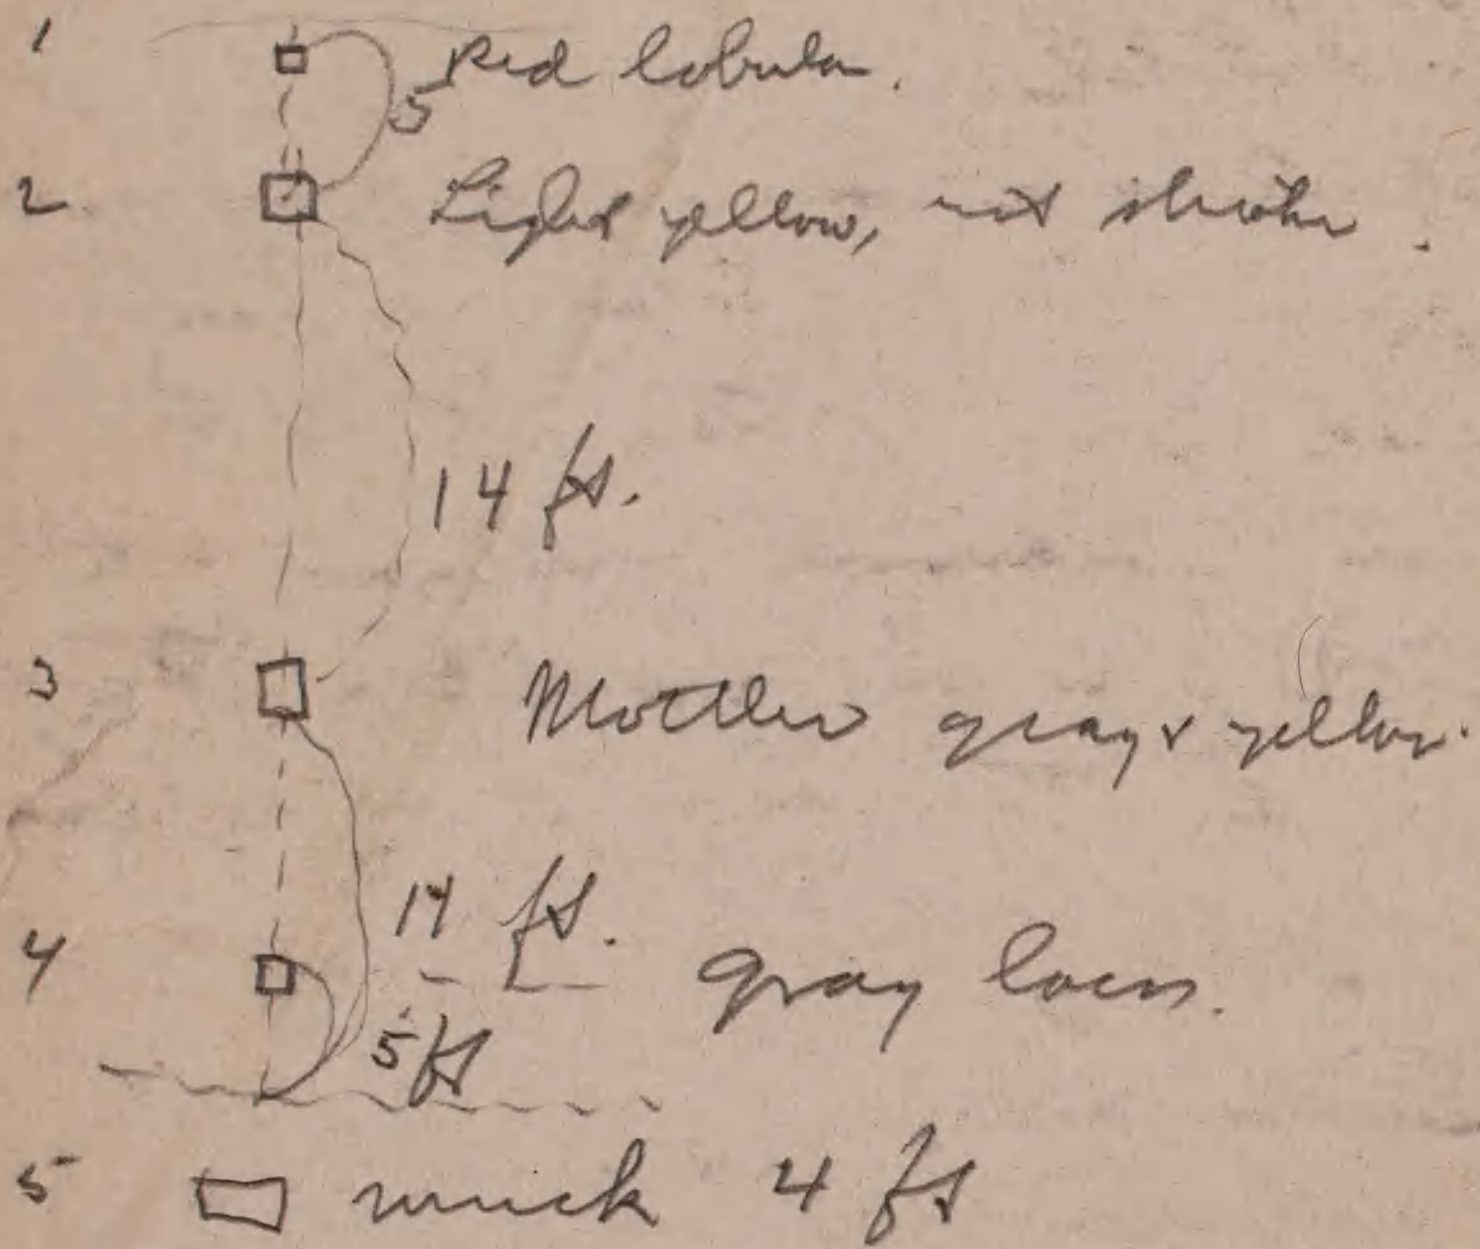 1 Red lobular.
5
2 Light yellow, not
14 ft.
3 Mottled gray & yellow.
14 ft.
4 Gray loess.
5 ft
5 muck 4 ft